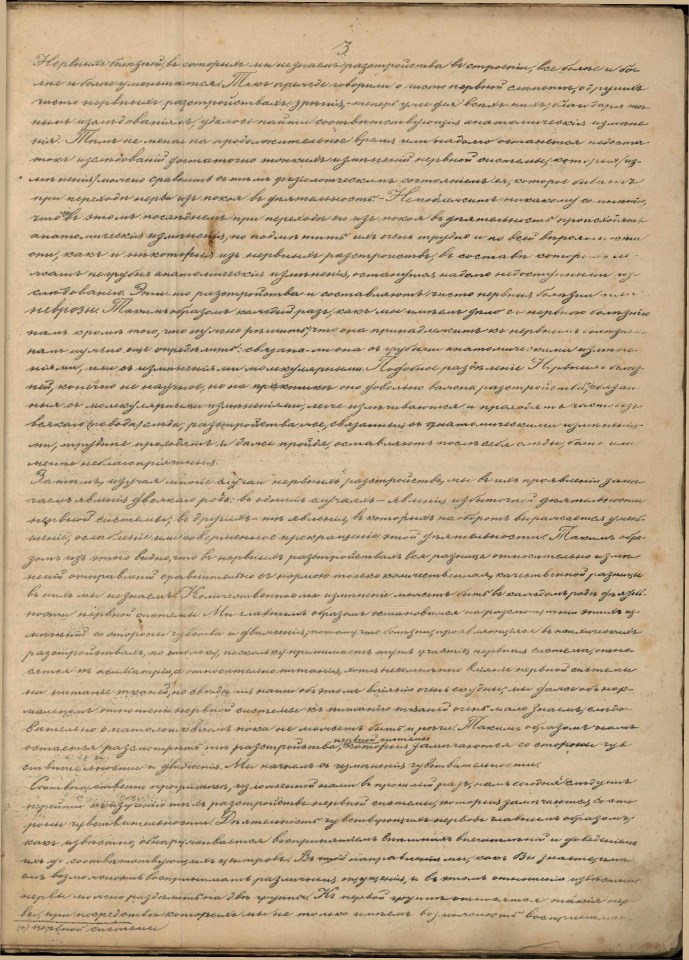 3
Нервныхъ болѣзней, въ которыхъ мы не знаемъ разстройства въ строеніи, все болѣе и бо-
лѣе и болѣе уменьшается. Такъ прежде говорили о чисто нервной слѣпотѣ, о другихъ
чисто нервныхъ разстройствахъ зрѣнія, теперь уже для всѣхъ нихъ, благодаря точ-
нымъ изслѣдованіямъ, удалось найти соответствующія анатомическія измѣне-
нія. Тѣмъ не менѣе на продолжительное время или надолго останется недоста-
токъ изслѣдованій достаточно тонкихъ измѣненій нервной системы, которыя (из-
мѣненія) можно сравнить съ тѣмъ физіологическимъ состояніемъ ея, которое бываетъ
при переходѣ нерва изъ покоя въ дѣятельность. Не подлежитъ никакому сомнѣнію,
что въ этомъ послѣднемъ при переходѣ его изъ покоя въ дѣятельность происходятъ
анатомическія измѣненія, но подмѣтить ихъ очень трудно и по всей вѣроятности
они, какъ и нѣкоторыя изъ нервныхъ разстройствъ, въ составѣ которыхъ ле-
жатъ не грубыя анатомическія измѣненія, останутся надолго недоступными из-
слѣдованію. Эти то разстройства и составляютъ чисто нервныя болѣзни или
неврозы. Такимъ образомъ каждый разъ, какъ мы имѣемъ дѣло съ нервною болѣзнію
намъ кромѣ того, что нужно рѣшить, что она принадлежитъ къ нервнымъ болѣзнямъ
намъ нужно еще опредѣлить: связана-ли она съ грубыми анатомическими измѣне-
ніями, или съ измѣненіями молекулярными. Подобное раздѣленіе Нервныхъ болѣз-
ней, конечно не научное, но на практикѣ оно довольно важно: разстройства, связан-
ныя съ молекулярными измѣненіями, легче излѣчиваются и проходятъ часто безъ
всякаго слѣда, разстройства же, связанныя съ анатомическими измѣненія-
ми, труднѣе проходятъ и даже пройдя, оставляютъ послѣ себя слѣды, болѣе или
менѣе неблагопріятныя.
Затѣмъ, изучая многіе случаи нервныхъ разстройствъ, мы въ ихъ проявленіи замѣ-
чаемъ явленія двоякаго рода: въ однихъ случаяхъ — явленія избыточной дѣятельности
нервной системы, въ другихъ — тѣ явленія, въ которыхъ на оборотъ выражается умень-
шеніе, ослабленіе или совершенное прекращеніе этой дѣятельности. Такимъ обра-
зомъ изъ этого видно, что въ нервныхъ разстройствахъ вся разница относительно измѣ-
неній отправленій сравнительно съ нормою только количественная, качественной разницы
въ нихъ мы не знаемъ. Количественное измѣненіе можетъ быть въ каждомъ родѣ дѣятель-
ности нервной системы. Мы главнымъ образомъ остановимся на разсмотрѣніи этихъ из-
мѣненій со стороны чувства и движенія, потому что болѣзни, проявляющіяся въ психическихъ
разстройствахъ, по столько, по сколько принимаетъ тутъ участіе нервная система, отно-
сятся къ психіатріи, а относительно питанія, хотя несомнѣнно вліяніе нервной системы
на питаніе тканей, но свѣдѣнія наши объ этомъ вліяніи очень скудны; мы даже объ нор-
мальномъ отношеніи нервной системы къ питанію тканей очень мало знаемъ, слѣдо-
вательно о патологическомъ пока не можетъ быть и рѣчи. Такимъ образомъ намъ
нервной системы
остается разсмотрѣть тѣ разстройства, которыя заключаются со стороны чув-
ствительности и движенія. Мы начнемъ съ измѣненія чувствительности.
Соответственно программѣ, изложенной нами въ прошлый разъ, намъ сегодня слѣдуетъ
перейти къ изученію тѣхъ разстройствъ нервной системы, которыя заключаются со сто-
роны чувствительности. Дѣятельность чувствующихъ нервовъ главнымъ образомъ,
какъ извѣстно, обнаруживается воспріятіемъ внѣшнихъ впечатлѣній и доведеніемъ
ихъ до соответствующихъ центровъ. Въ этой направленіи мы, какъ Вы знаете, имѣ-
емъ возможность воспринимать различныя ощущенія, и въ этомъ отношеніи извѣстные
нервы можно раздѣлить на двѣ группы. Къ первой группѣ относятся такія нер-
вы, при посредствѣ которыхъ мы не только имѣемъ возможность воспринимать
(*) нервной системы